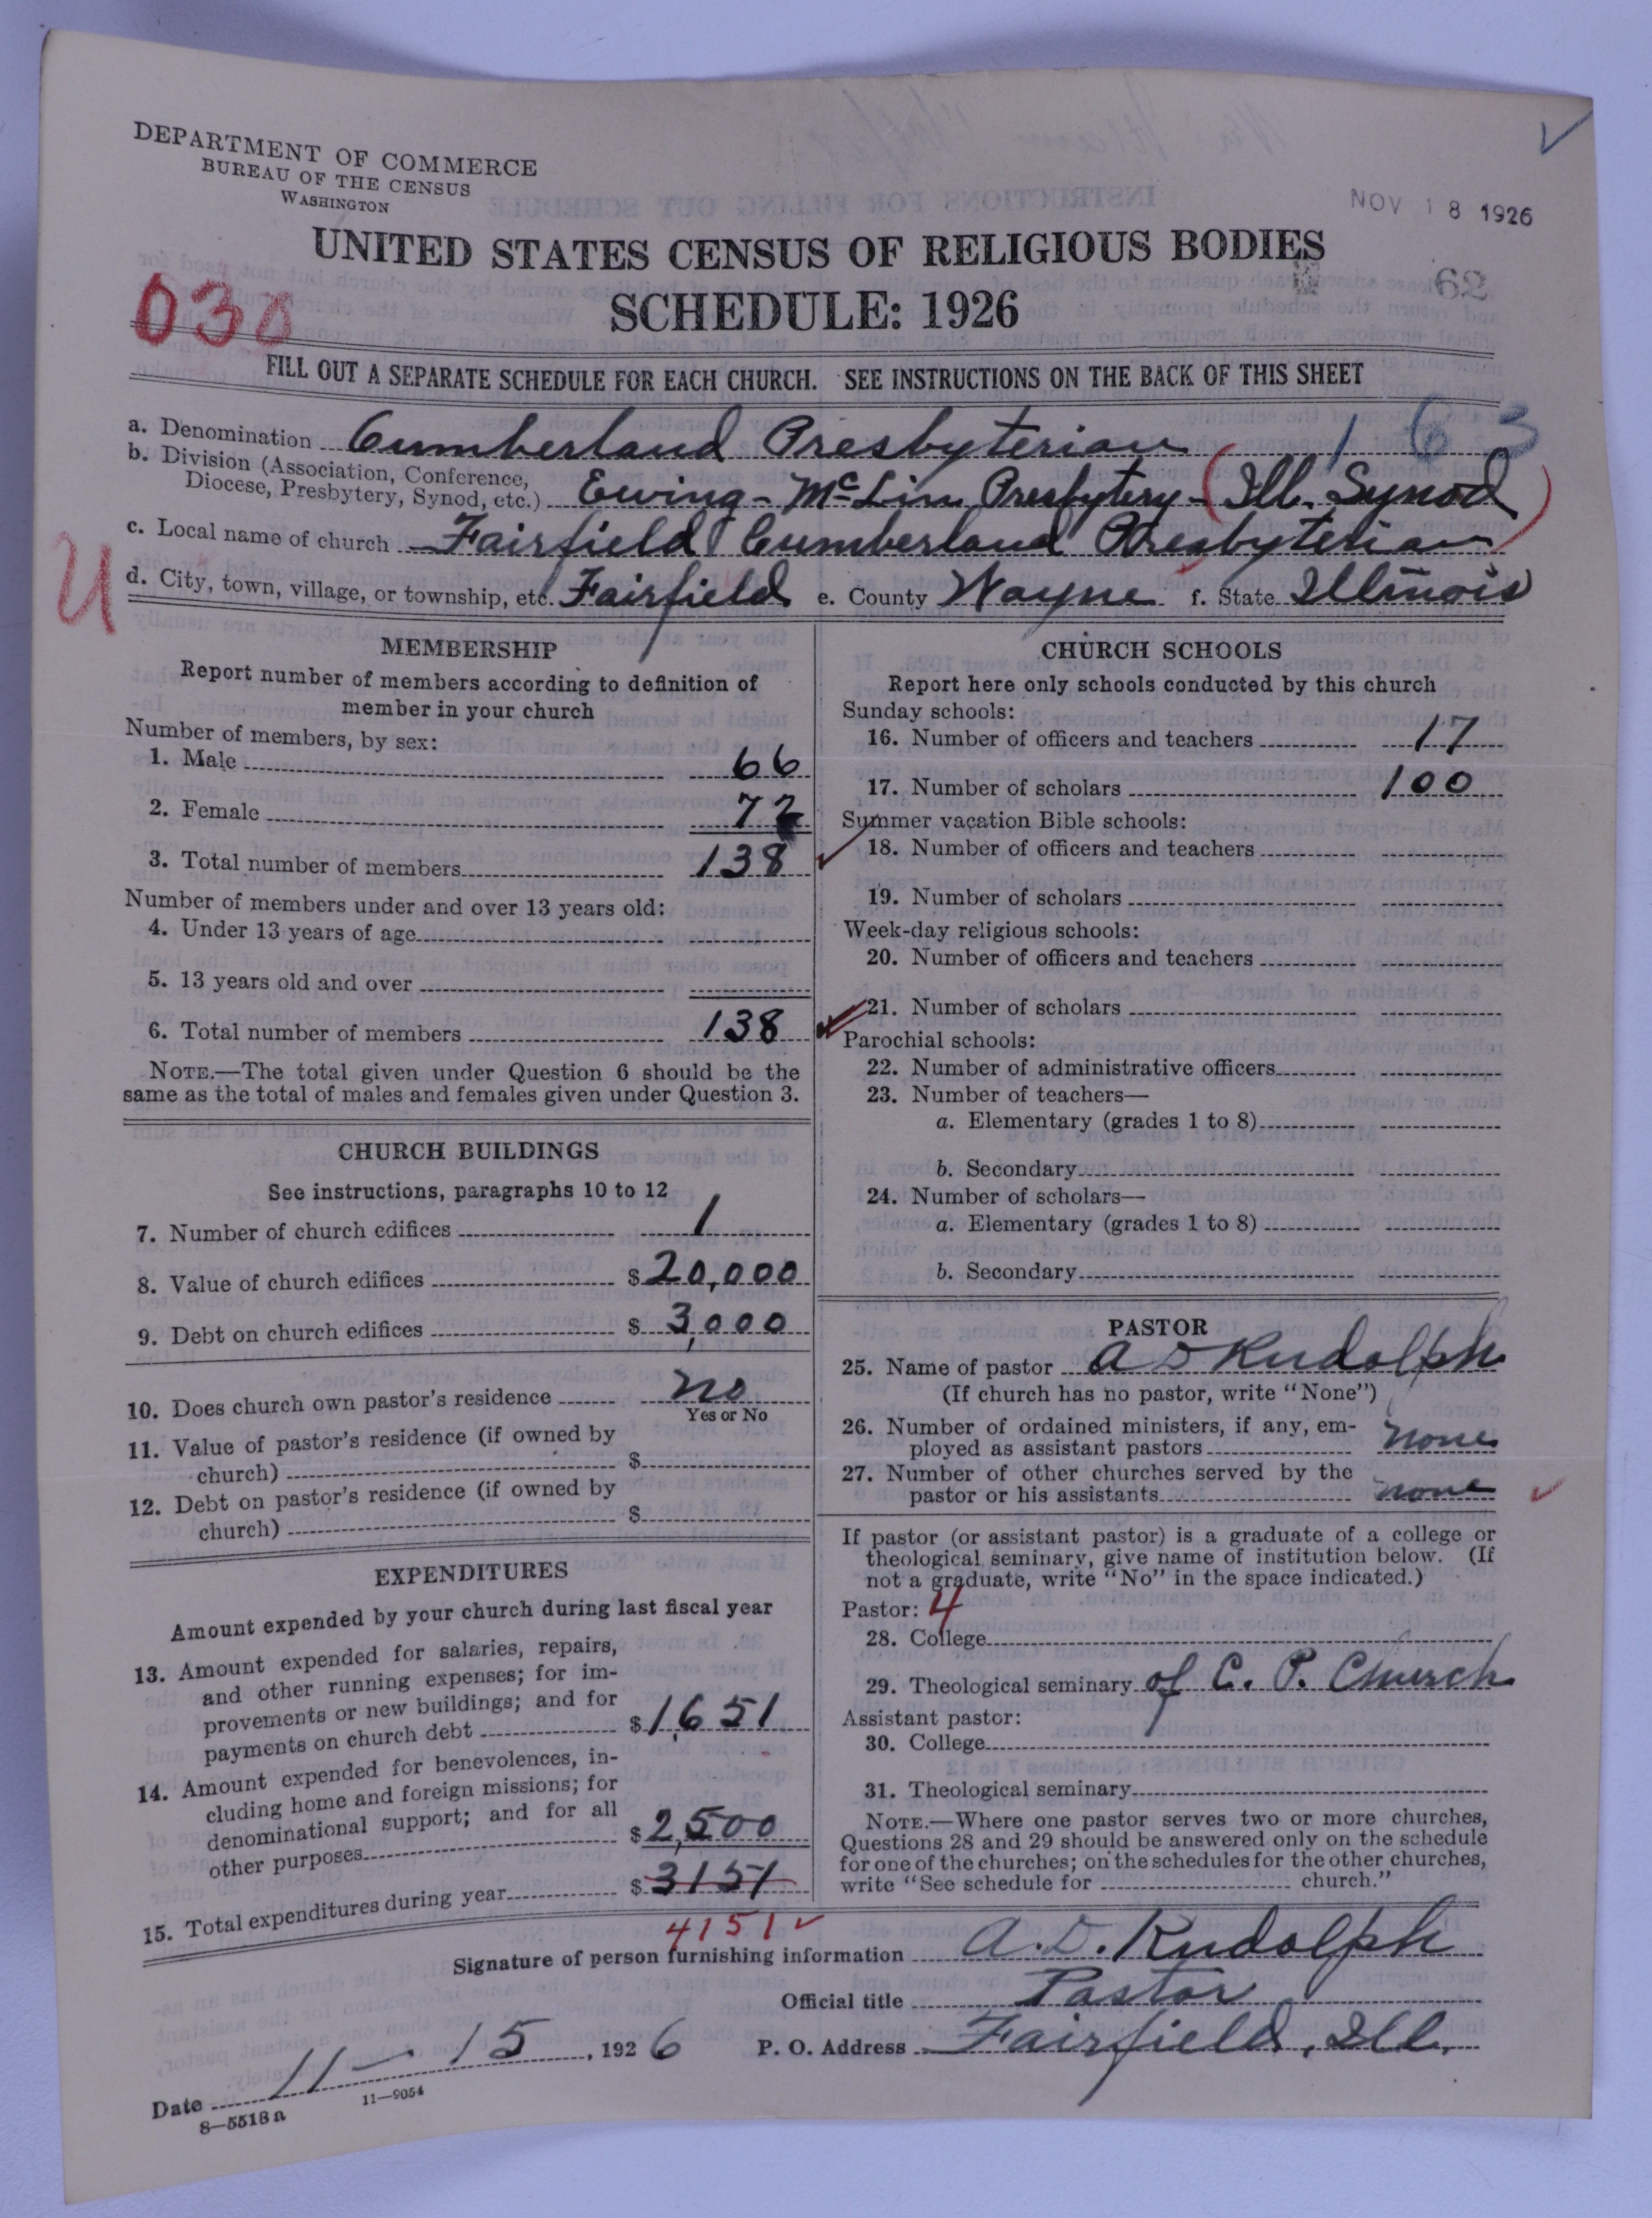 DEPARTMENT OF COMMERCE
BUREAU OF THE CENSUS
WASHINGTON
NOV 18 1926
UNITED STATES CENSUS OF RELIGIOUS BODIES
SCHEDULE: 1926
62
030
FILL OUT A SEPARATE SCHEDULE FOR EACH CHURCH. SEE INSTRUCTIONS ON THE BACK OF THIS SHEET
a. Denomination Cumberland Presbyterian 163
b. Division (Association, Conference,
Diocese, Presbytery, Synod, etc.) Ewing-McLin Presbytery-(Ill. Synod)
c. Local name of church Fairfield Cumberland Presbyterian
U
d. City, town, village, or township, etc. Fairfield e. County Wayne f. State Illinois
MEMBERSHIP
Report number of members according to definition of
member in your church
Number of members, by sex:
1. Male 66
2. Female 72
3. Total number of members 138
Number of members under and over 13 years old:
4. Under 13 years of age
5. 13 years old and over
6. Total number of members 138
NOTE.—The total given under Question 6 should be the
same as the total of males and females given under Question 3.
CHURCH BUILDINGS
See instructions, paragraphs 10 to 12
7. Number of church edifices 1
8. Value of church edifices $20,000
9. Debt on church edifices $3,000
10. Does church own pastor's residence no
Yes or No
11. Value of pastor's residence (if owned by
church) $
12. Debt on pastor's residence (if owned by
church) $
EXPENDITURES
Amount expended by your church during last fiscal year
13. Amount expended for salaries, repairs,
and other running expenses; for im-
provements or new buildings; and for
payments on church debt $1,651
14. Amount expended for benevolences, in-
cluding home and foreign missions; for
denominational support; and for all
other purposes $2,500
15. Total expenditures during year $3151
4151
CHURCH SCHOOLS
Report here only schools conducted by this church
Sunday schools:
16. Number of officers and teachers 17
17. Number of scholars 100
Summer vacation Bible schools:
18. Number of officers and teachers
19. Number of scholars
Week-day religious schools:
20. Number of officers and teachers
21. Number of scholars
Parochial schools:
22. Number of administrative officers
23. Number of teachers—
a. Elementary (grades 1 to 8)
b. Secondary
24. Number of scholars—
a. Elementary (grades 1 to 8)
b. Secondary
PASTOR
25. Name of pastor A D Rudolph
(If church has no pastor, write "None")
26. Number of ordained ministers, if any, em-
ployed as assistant pastors none
27. Number of other churches served by the
pastor or his assistants none
If pastor (or assistant pastor) is a graduate of a college or
theological seminary, give name of institution below. (If
not a graduate, write "No" in the space indicated.)
Pastor: 4
28. College
29. Theological seminary of C. P. Church
Assistant pastor:
30. College
31. Theological seminary
NOTE.—Where one pastor serves two or more churches,
Questions 28 and 29 should be answered only on the schedule
for one of the churches; on the schedules for the other churches,
write "See schedule for church."
Signature of person furnishing information A. D. Rudolph
Official title Pastor
Date 11-15, 1926 P. O. Address Fairfield, Ill.
8—5518 a 11—9054